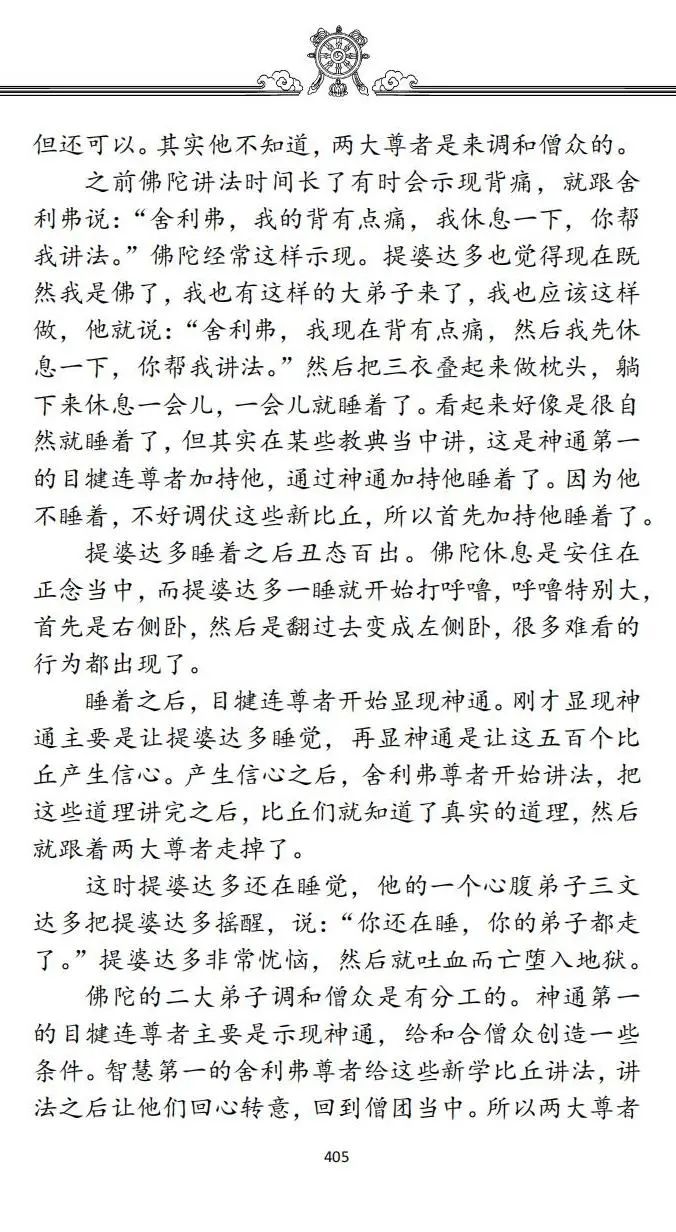 但还可以。其实他不知道，两大尊者是来调和僧众的。
之前佛陀讲法时间长了有时会示现背痛，就跟舍
利弗说：“舍利弗，我的背有点痛，我休息一下，你帮
我讲法。”佛陀经常这样示现。提婆达多也觉得现在既
然我是佛了，我也有这样的大弟子来了，我也应该这样
做，他就说：“舍利弗，我现在背有点痛，然后我先休
息一下，你帮我讲法。”然后把三衣叠起来做枕头，躺
下来休息一会儿，一会儿就睡着了。看起来好像是很自
然就睡着了，但其实在某些教典当中讲，这是神通第一
的目犍连尊者加持他，通过神通加持他睡着了。因为他
不睡着，不好调伏这些新比丘，所以首先加持他睡着了。
提婆达多睡着之后丑态百出。佛陀休息是安住在
正念当中，而提婆达多一睡就开始打呼噜，呼噜特别大，
首先是右侧卧，然后是翻过去变成左侧卧，很多难看的
行为都出现了。
睡着之后，目犍连尊者开始显现神通。刚才显现神
通主要是让提婆达多睡觉，再显神通是让这五百个比
丘产生信心。产生信心之后，舍利弗尊者开始讲法，把
这些道理讲完之后，比丘们就知道了真实的道理，然后
就跟着两大尊者走掉了。
这时提婆达多还在睡觉，他的一个心腹弟子三文
达多把提婆达多摇醒，说：“你还在睡，你的弟子都走
了。”提婆达多非常忧恼，然后就吐血而亡堕入地狱。
佛陀的二大弟子调和僧众是有分工的。神通第一
的目犍连尊者主要是示现神通，给和合僧众创造一些
条件。智慧第一的舍利弗尊者给这些新学比丘讲法，讲
法之后让他们回心转意，回到僧团当中。所以两大尊者
405